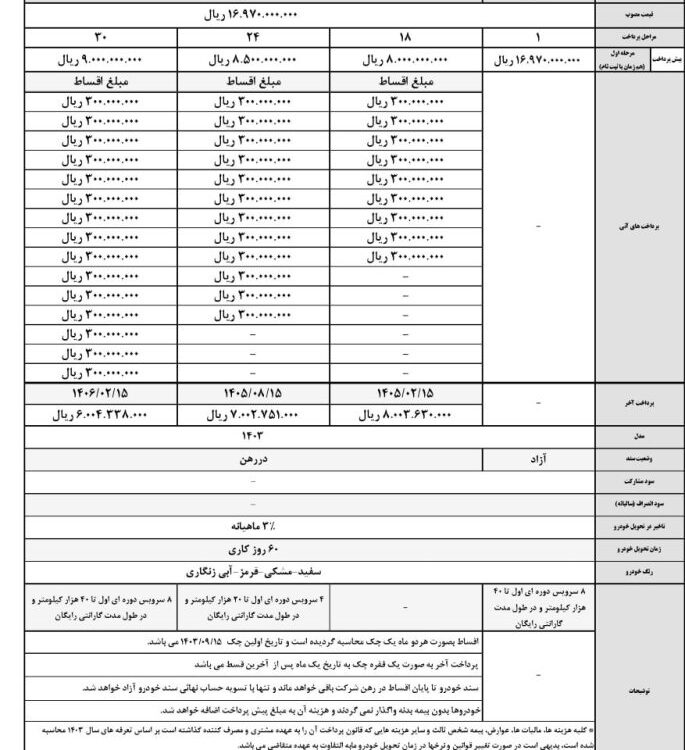 قیمت مصوب ۱۶.۹۷۰.۰۰۰.۰۰۰ ریال
مراحل پرداخت ۱ ۱۸ ۲۴ ۳۰
پیش پرداخت مرحله اول (همزمان با ثبت نام) ۱۶.۹۷۰.۰۰۰.۰۰۰ ریال ۸.۰۰۰.۰۰۰.۰۰۰ ریال ۸.۵۰۰.۰۰۰.۰۰۰ ریال ۹.۰۰۰.۰۰۰.۰۰۰ ریال
پرداخت های آتی – مبلغ اقساط مبلغ اقساط مبلغ اقساط
۳۰۰.۰۰۰.۰۰۰ ریال ۳۰۰.۰۰۰.۰۰۰ ریال ۳۰۰.۰۰۰.۰۰۰ ریال
۳۰۰.۰۰۰.۰۰۰ ریال ۳۰۰.۰۰۰.۰۰۰ ریال ۳۰۰.۰۰۰.۰۰۰ ریال
۳۰۰.۰۰۰.۰۰۰ ریال ۳۰۰.۰۰۰.۰۰۰ ریال ۳۰۰.۰۰۰.۰۰۰ ریال
۳۰۰.۰۰۰.۰۰۰ ریال ۳۰۰.۰۰۰.۰۰۰ ریال ۳۰۰.۰۰۰.۰۰۰ ریال
۳۰۰.۰۰۰.۰۰۰ ریال ۳۰۰.۰۰۰.۰۰۰ ریال ۳۰۰.۰۰۰.۰۰۰ ریال
۳۰۰.۰۰۰.۰۰۰ ریال ۳۰۰.۰۰۰.۰۰۰ ریال ۳۰۰.۰۰۰.۰۰۰ ریال
۳۰۰.۰۰۰.۰۰۰ ریال ۳۰۰.۰۰۰.۰۰۰ ریال ۳۰۰.۰۰۰.۰۰۰ ریال
۳۰۰.۰۰۰.۰۰۰ ریال ۳۰۰.۰۰۰.۰۰۰ ریال ۳۰۰.۰۰۰.۰۰۰ ریال
۳۰۰.۰۰۰.۰۰۰ ریال ۳۰۰.۰۰۰.۰۰۰ ریال ۳۰۰.۰۰۰.۰۰۰ ریال
– ۳۰۰.۰۰۰.۰۰۰ ریال ۳۰۰.۰۰۰.۰۰۰ ریال
– ۳۰۰.۰۰۰.۰۰۰ ریال ۳۰۰.۰۰۰.۰۰۰ ریال
– ۳۰۰.۰۰۰.۰۰۰ ریال ۳۰۰.۰۰۰.۰۰۰ ریال
– – ۳۰۰.۰۰۰.۰۰۰ ریال
– – ۳۰۰.۰۰۰.۰۰۰ ریال
– – ۳۰۰.۰۰۰.۰۰۰ ریال
پرداخت آخر – ۱۴۰۵/۰۲/۱۵ ۱۴۰۵/۰۸/۱۵ ۱۴۰۶/۰۲/۱۵
۸.۰۰۳.۶۳۰.۰۰۰ ریال ۷.۰۰۲.۷۵۱.۰۰۰ ریال ۶.۰۰۴.۳۳۸.۰۰۰ ریال
مدل ۱۴۰۳
وضعیت سند آزاد دررهن
سود مشارکت –
سود انصراف (سالیانه) –
تاخیر در تحویل خودرو ۳٪ ماهیانه
زمان تحویل خودرو ۶۰ روز کاری
رنگ خودرو سفید-مشکی-قرمز-آبی زنگاری
۸ سرویس دوره ای اول تا ۴۰ هزار کیلومتر و در طول مدت گارانتی رایگان – ۴ سرویس دوره ای اول تا ۲۰ هزار کیلومتر و در طول مدت گارانتی رایگان ۸ سرویس دوره ای اول تا ۴۰ هزار کیلومتر و در طول مدت گارانتی رایگان
توضیحات – اقساط بصورت هردو ماه یک چک محاسبه گردیده است و تاریخ اولین چک ۱۴۰۳/۰۹/۱۵ می باشد.
پرداخت آخر به صورت یک فقره چک به تاریخ یک ماه پس از آخرین قسط می باشد
سند خودرو تا پایان اقساط در رهن شرکت باقی خواهد ماند و تنها با تسویه حساب نهائی سند خودرو آزاد خواهد شد.
خودروها بدون بیمه بدنه واگذار نمی گردند و هزینه آن به مبلغ پیش پرداخت اضافه خواهد شد.
* کلیه هزینه ها، مالیات ها، عوارض، بیمه شخص ثالث و سایر هزینه هایی که قانون پرداخت آن را به عهده مشتری و مصرف کننده گذاشته است بر اساس تعرفه های سال ۱۴۰۳ محاسبه
شده است، بدیهی است در صورت تغییر قوانین و نرخها در زمان تحویل خودرو مابه التفاوت به عهده متقاضی می باشد.